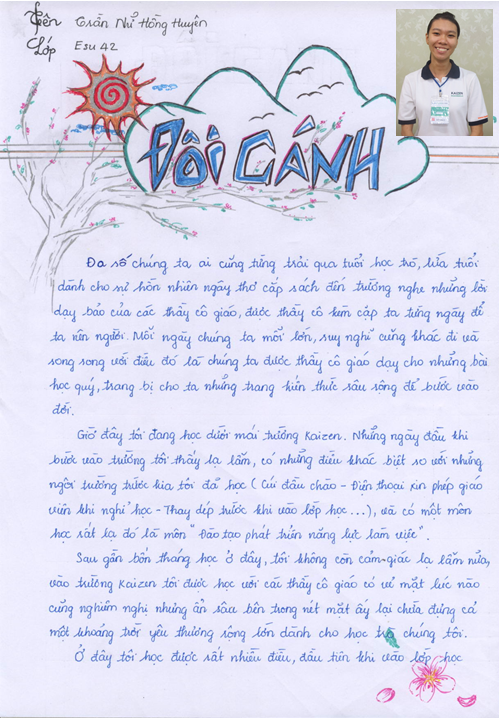 Tên Trần Nữ Hồng Huyên
Lớp Esu 42
ĐÔI CÁNH
Đa số chúng ta ai cũng từng trải qua tuổi học trò, lứa tuổi
dành cho sự hồn nhiên ngây thơ cắp sách đến trường nghe những lời
dạy bảo của các thầy cô giáo, được thầy cô kìm cặp ta từng ngày để
ta nên người. Mỗi ngày chúng ta mỗi lớn, suy nghĩ cũng khác đi và
song song với điều đó là chúng ta được thầy cô giáo dạy cho những bài
học quý, trang bị cho ta những trang kiến thức sâu rộng để bước vào
đời.
Giờ đây tôi đang học dưới mái trường Kaizen. Những ngày đầu khi
bước vào trường tôi thấy lạ lẫm, có những điều khác biệt so với những
ngôi trường trước kia tôi đã học (Cúi đầu chào - Điện thoại xin phép giáo
viên khi nghỉ học - Thay dép trước khi vào lớp học...), và có một môn
học rất lạ đó là môn "Đào tạo phát triển năng lực làm việc".
Sau gần bốn tháng học ở đây, tôi không còn cảm giác lạ lẫm nữa,
vào trường Kaizen tôi được học với các thầy cô giáo có vẻ mặt lúc nào
cũng nghiêm nghị nhưng ẩn sâu bên trong nét mặt ấy lại chứa đựng cả
một khoảng trời yêu thương rộng lớn dành cho học trò chúng tôi.
Ở đây tôi học được rất nhiều điều, đầu tiên khi vào lớp học